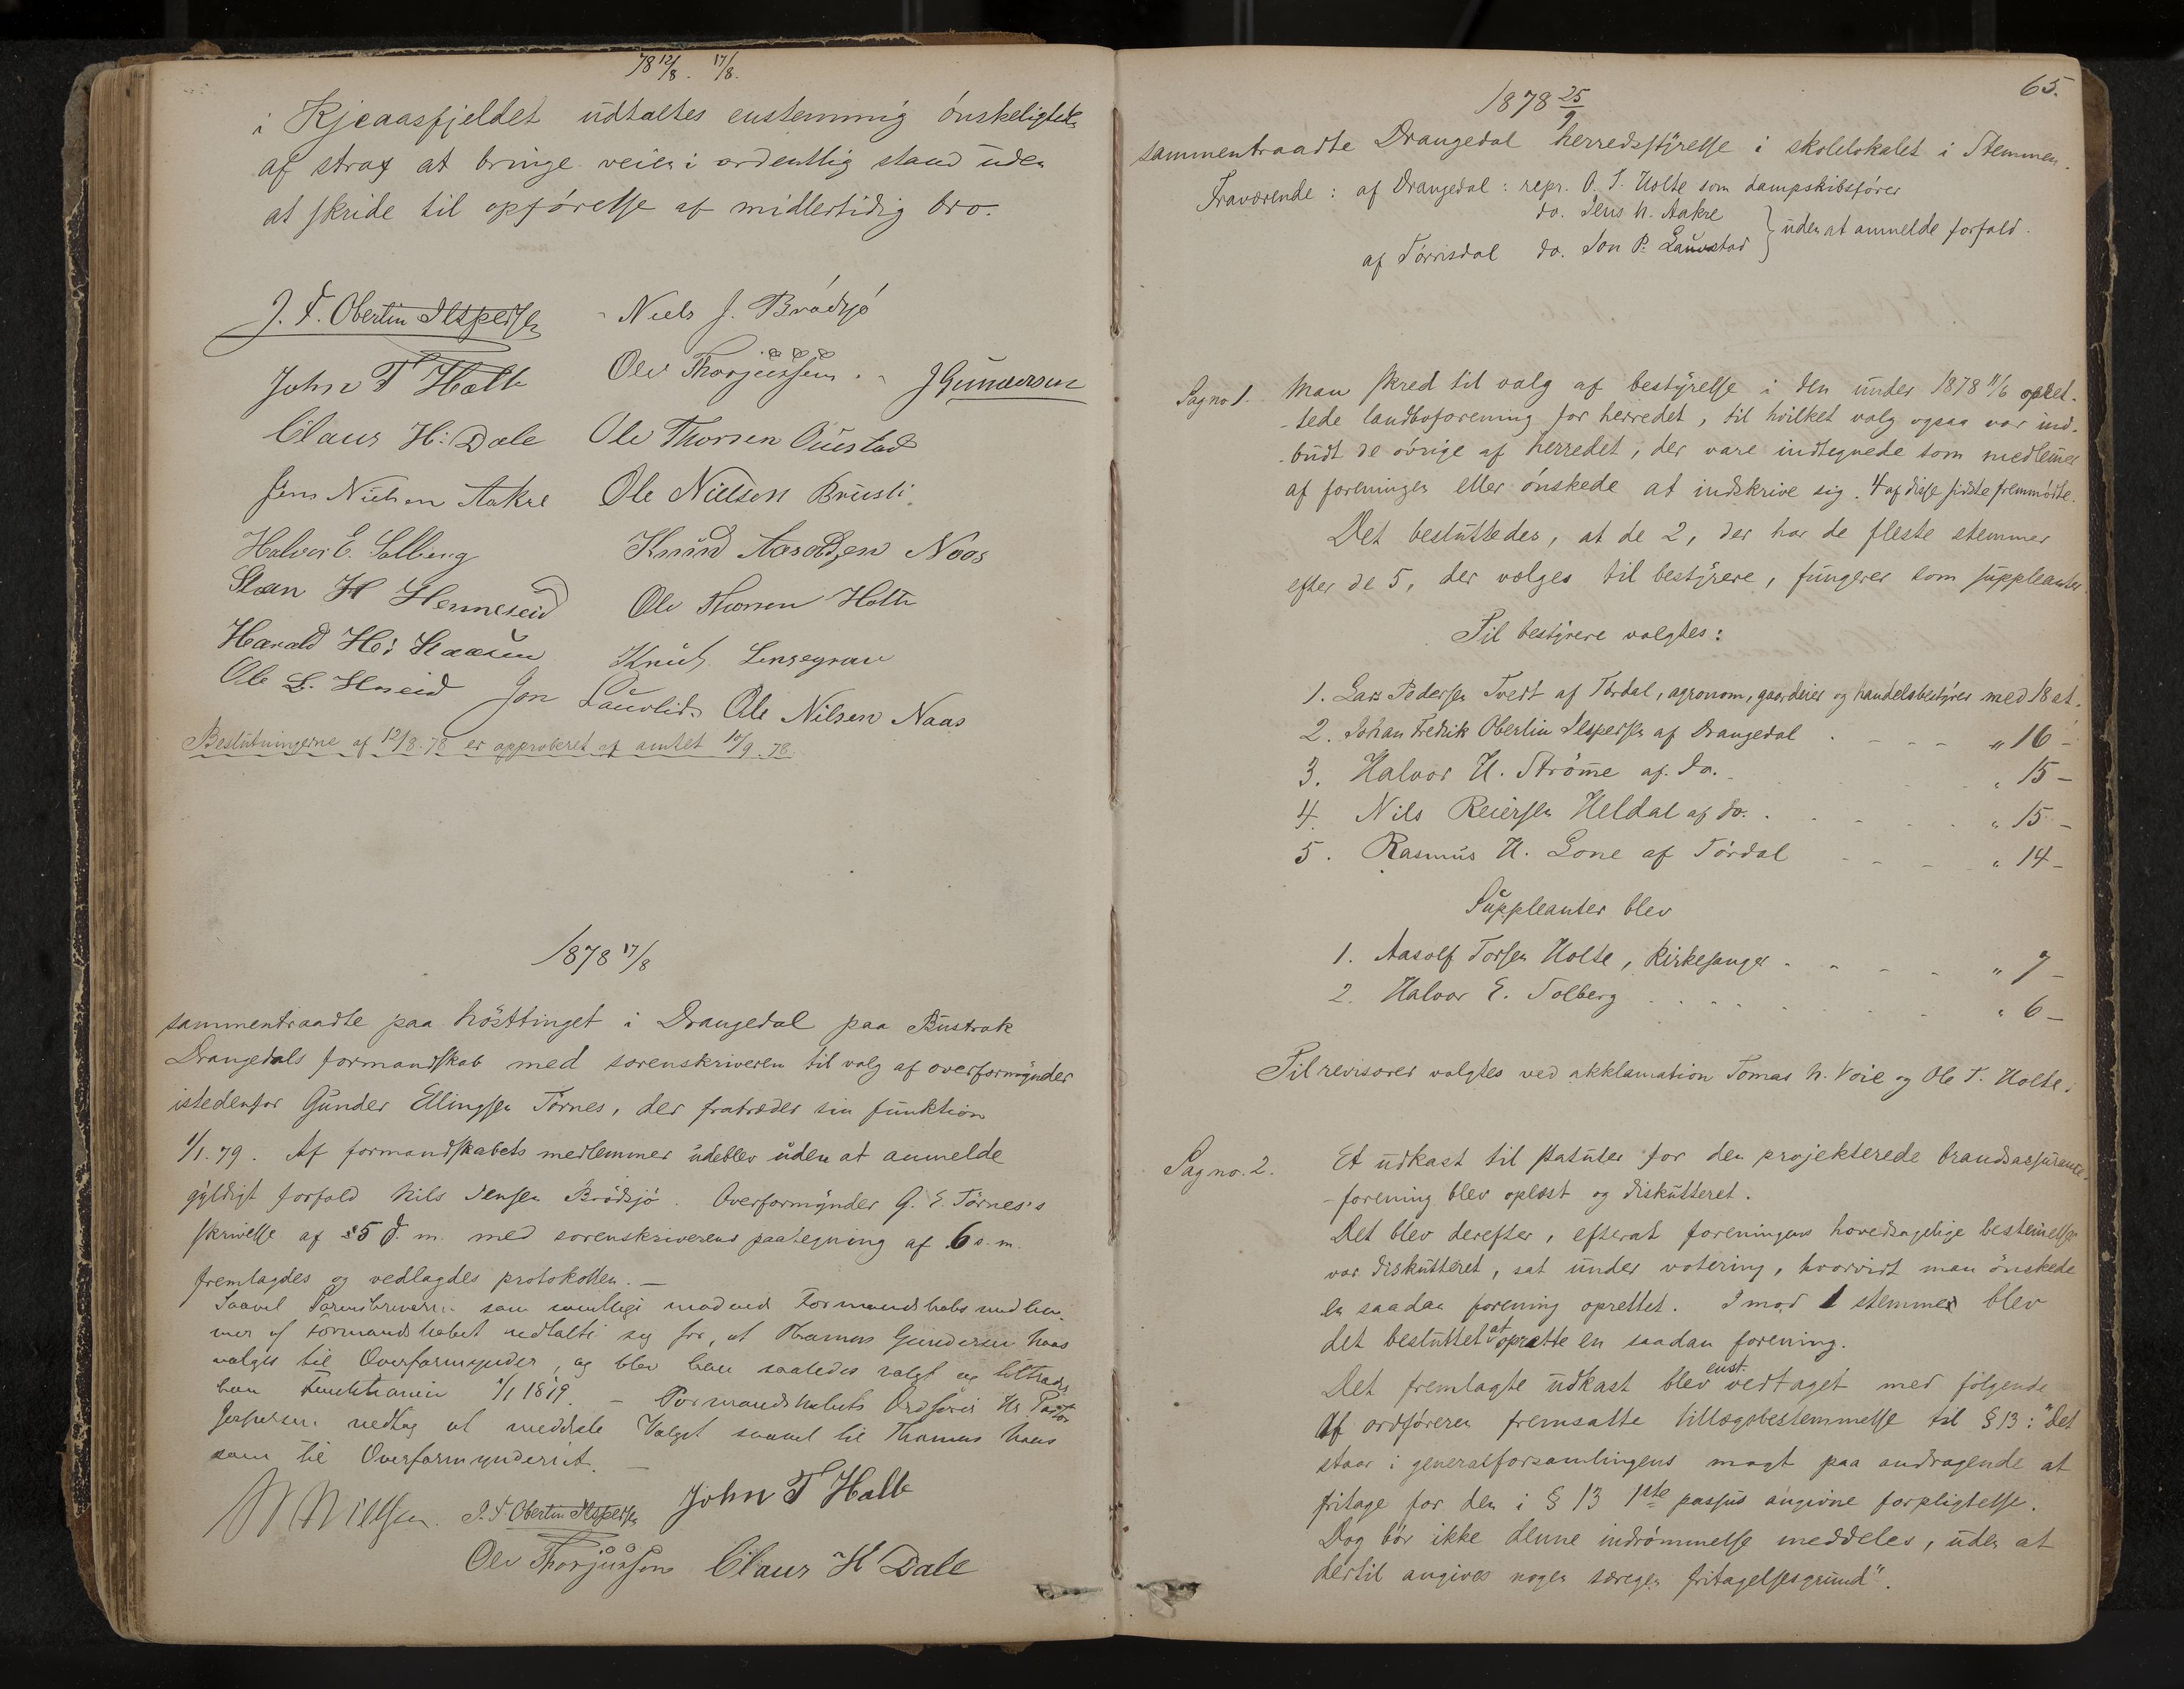 78 12/8. 17/8.
i Kjeaasfjeldet udtaltes enstemmig ónskeligheden
af strax at bringe veien i ordentlig stand uden
at skride til opfórelse af midlertidig bro.
J. F. Obertin Jespersen Niels J. Brødsjó
John T Holte Ole Thorjussen J Gundersen
Claus H: Dale Ole Thorsen Ouestad
Jens Nielsen Aakre Ole Nielsen Brusli.
Halvor E. Solberg Knud Aasoldsen Naas
Stean H Henneseid Ole Thorsen Holte
Harald H: Knut
Ole L. Jon Lauvlid Ole Nilsen Naas
Beslutningerne af 12/8. 78 er approberet af amtet 10/9. 78.
1878 17/8
sammentraadte paa hósttinget i Drangedal paa Bustrak
Drangedals formandskab med sorenskriveren til valg af overformynder
istedenfor Gunder Ellingsen Tórnes, der fratræder sin funktion
1/1. 79. Af formandskabets medlemmer udeblev uden at anmelde
gyldigt forfald Nils Jensen Brødsjó. Overformynder G. E. Tórnes's
skrivelse af 5 d. m. med sorenskriverens paategning af 6 s. m.
fremlagdes og vedlagdes protokollen. —
Saavel Sorenskriveren som samtlige mødende Formandskabsmedlem-
mer af Formandskabet udtalte sig for, at Thomas Gundersen Naas
valges til Overformynder, og blev han saaledes valgt og tiltræder
han Funktionen 1/1 1879. — Formandskabets Ordfører Hr. Pastor
Jespersen vedtog at meddele Valget saavel til Thomas Naas
som til Overformynderiet. —
N Nielsen. J. F. Obertin Jespersen John T Holte
Ole Thorjussen Claus H Dale
65.
1878 25/9
sammentraadte Drangedal herredsstyrelse i skolelokalet i Stemmen.
Fraværende: af Drangedal: repr. O. T. Holte som dampskibsfører
do. Jens N. Aakre
uden at anmelde forfald.
af Tórrisdal do. Jon P. Lauvstad
Sag no 1. Man skred til valg af bestyrelse i den under 1878 11/6 opret-
-tede landboforening for herredet, til hvilket valg ogsaa var ind-
-budt de óvrige af herredet, der vare indtegnede som medlemmer
af foreningen eller ónskede at indskrive sig. 4 af disse sidste fremmódte.
Det besluttedes, at de 2, der har de fleste stemmer
efter de 5, der vælges til bestyrere, fungerer som suppleanter.
Til bestyrere valgtes:
1. Lars Pedersen Tvedt af Tórdal, agronom, gaardeier og handelsbestyrer med 18 st.
2. Johan Fredrik Obertin Jespersen af Drangedal . - - - „ 16 -
3. Halvor H. Strómme af. do. - „ 15 -
4. Nils Reiersen Heldal af do. . - - - „ 15 -
5. Rasmus H. Lone af Tórdal - - - - „ 14 -
Suppleanter blev
1. Aasolf Torsen Holte, kirkesanger - - - - „ 7 -
2. Halvor E. Solberg . . . - - - „ 6 -
Til revisorer valgtes ved akklamation Tomas N. Voie og Ole T. Holte.
Sag no. 2. Et udkast til statuter for den projekterede brandassurance-
-forening blev oplæst og diskutteret.
Det blev derefter, efterat foreningens hovedsagelige bestemmelser
var diskutteret, sat under votering, hvorvidt man ónskede
en saadan forening oprettet. Imod 1 stemme blev
det besluttet at oprætte en saadan forening.
Det fremlagte udkast blev enst. vedtaget med fólgende
af ordfóreren fremsatte tillægsbestemmelse til § 13: "Det
staar i generalforsamlingens magt paa andragende at
fritage for den i § 13 1ste passus angivne forpligtelse.
Dog bór ikke denne indrómmelse meddeles, uden at
dertil angives nogen særegen fritagelsesgrund".